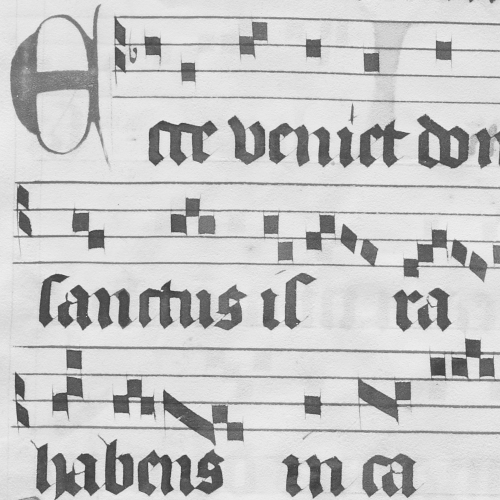 Ecce veniet don
sanctus iſ ra
habens in ea